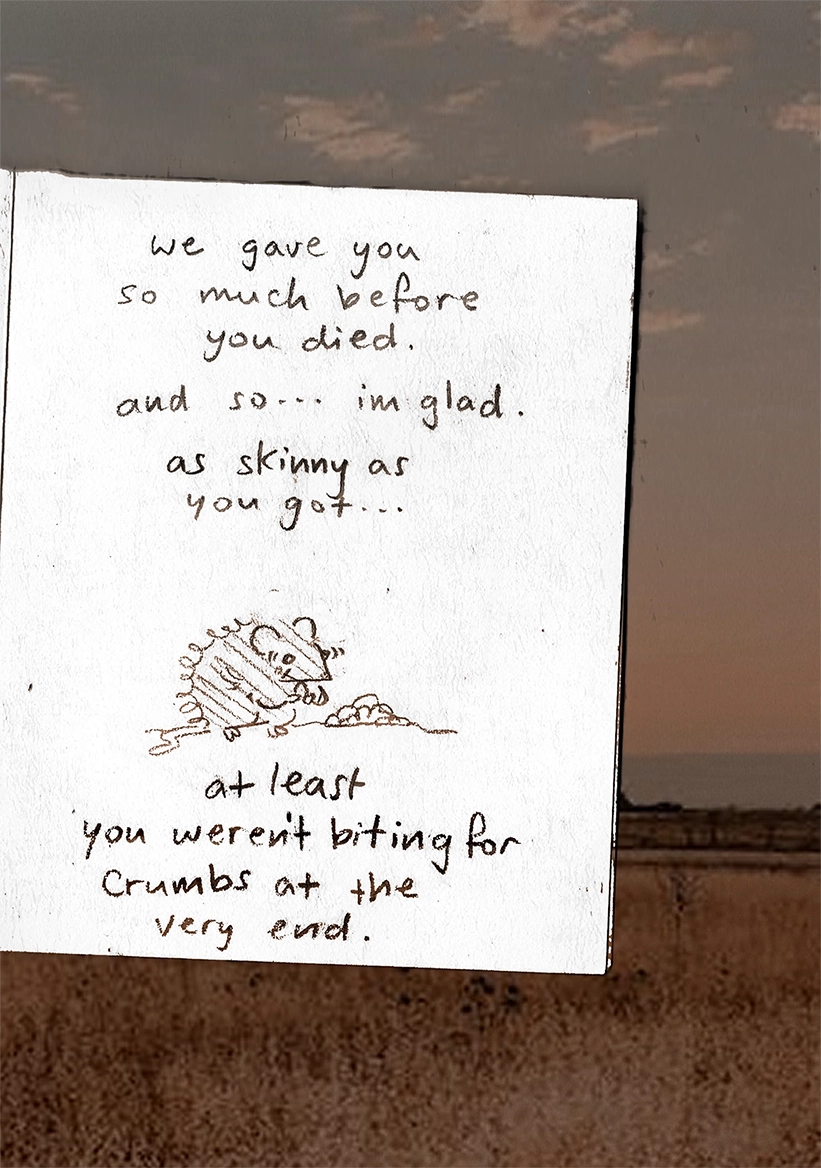 we gave you
so much before
you died.
and so... im glad.
as skinny as
you got...
at least
you weren't biting for
crumbs at the
very end.